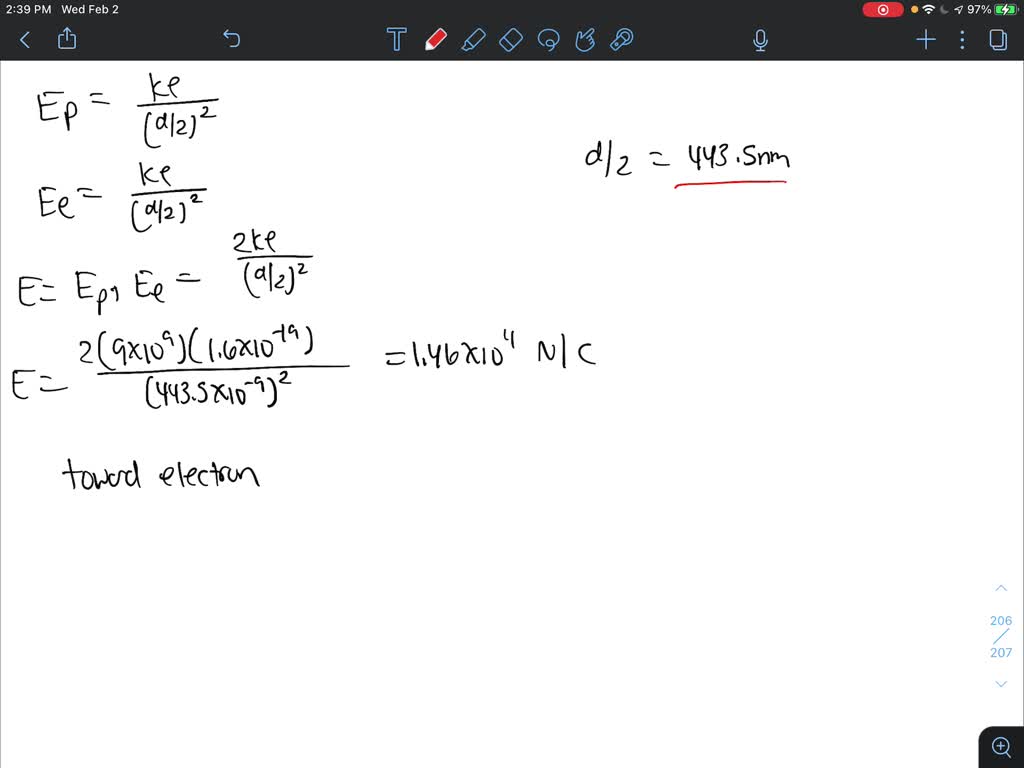 2:39 PM Wed Feb 2 97%
Ep = ke / (d/2)²
d/2 = 443.5nm
Ee = ke / (d/2)²
E = Ep, Ee = 2ke / (d/2)²
E = 2(9x10⁹)(1.6x10⁻¹⁹) / (443.5x10⁻⁹)² = 1.46x10⁴ N/C
toward electron
206
207